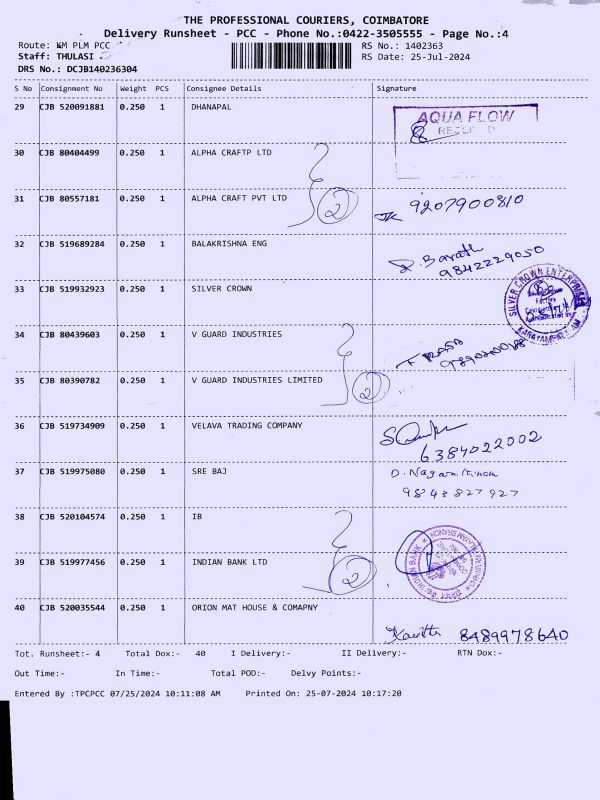 THE PROFESSIONAL COURIERS, COIMBATORE
Delivery Runsheet - PCC - Phone No.:0422-3505555 - Page No.:4
Route: KM PLM PCC
RS No.: 1402363
Staff: THULASI
RS Date: 25-Jul-2024
DRS No.: DCJB140236304
S No Consignment No Weight PCS Consignee Details Signature
29 CJB 520091881 0.250 1 DHANAPAL
AQUA FLOW
30 CJB 80404499 0.250 1 ALPHA CRAFTP LTD
31 CJB 80557181 0.250 1 ALPHA CRAFT PVT LTD
2
9207900810
32 CJB 519689284 0.250 1 BALAKRISHNA ENG
Barath
9842229050
33 CJB 519932923 0.250 1 SILVER CROWN
SILVER CROWN ENTERPRISES
34 CJB 80439603 0.250 1 V GUARD INDUSTRIES
35 CJB 80390782 0.250 1 V GUARD INDUSTRIES LIMITED
2
36 CJB 519734909 0.250 1 VELAVA TRADING COMPANY
6384022002
37 CJB 519975080 0.250 1 SRE BAJ
9843827927
38 CJB 520104574 0.250 1 IB
39 CJB 519977456 0.250 1 INDIAN BANK LTD
2
40 CJB 520035544 0.250 1 ORION MAT HOUSE & COMAPNY
8489978640
Tot. Runsheet:- 4 Total Dox:- 40 I Delivery:- II Delivery:- RTN Dox:-
Out Time:- In Time:- Total POD:- Delvy Points:-
Entered By :TPCPCC 07/25/2024 10:11:08 AM Printed On: 25-07-2024 10:17:20